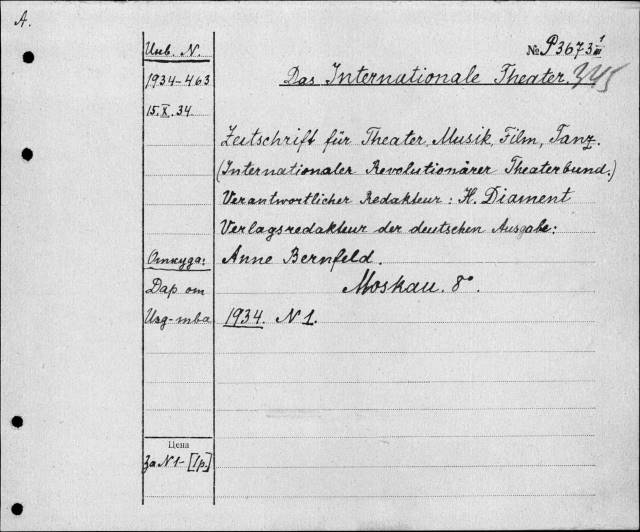 A.
Инв. N.
1934-463
15.X.34.
№ P3673 1/III
Das Internationale Theater
345
Zeitschrift für Theater, Musik, Film, Tanz.
(Internationaler Revolutionärer Theaterbund.)
Verantwortlicher Redakteur: H. Diament
Verlagsredakteur der deutschen Ausgabe:
Anne Bernfeld.
Moskau. 8°.
1934. N 1.
Откуда:
Дар от
Изд-тва
Цена
За N 1- [1р.]